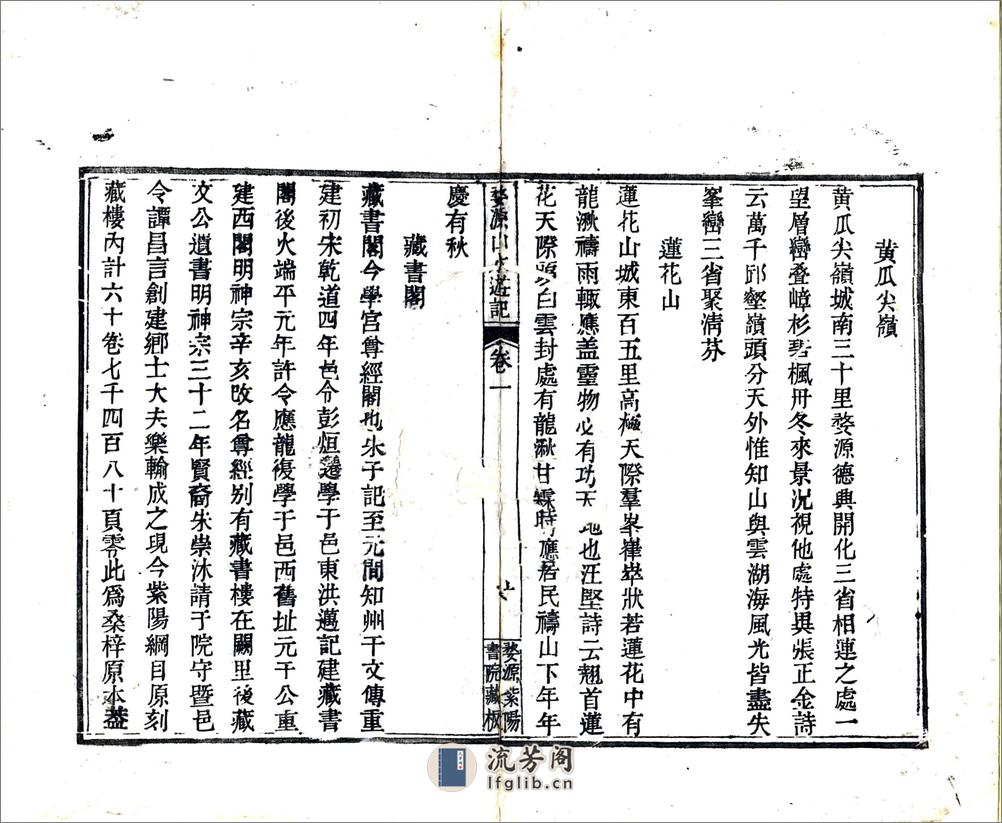 黄瓜尖嶺
黄瓜尖嶺城南三十里婺源德興開化三省相連之處一
望層巒叠嶂杉碧楓丹冬來景况視他處特異張正金詩
云萬千邱壑嶺頭分天外惟知山與雲湖海風光皆盡失
峯巒三省聚淸芬
蓮花山
蓮花山城東百五里高極天際羣峯崒狀若蓮花中有
龍湫禱雨輒應盖靈物必有功天地也汪堅詩云翹首蓮
花天際頭白雲封處有龍湫甘霖時應居民禱山下年年
婺源山水遊記
卷一
婺源紫陽
書院藏板
慶有秋
藏書閣
藏書閣今學宮尊經閣也朱子記至元間知州干文傳重
建初宋乾道四年邑令彭烜遷學于邑東洪邁記建藏書
閣後火端平元年許令應龍復學于邑西舊址元干公重
建西閣明神宗辛亥改名尊經别有藏書樓在闕里後藏
文公遺書明神宗三十二年賢裔朱崇沐請于院守暨邑
令譚昌言創建鄉士大夫樂輸成之現今紫陽綱目原刻
藏樓內計六十卷七千四百八十頁零此爲桑梓原本益
流芳阁
lfglib.cn